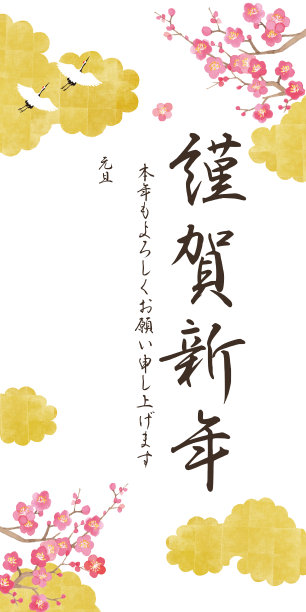 謹賀新年
本年もよろしくお願い申し上げます
元旦